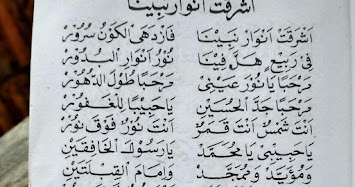 اشرقت انوار نبينا
اشرقت انوار نبينا فازدهى الكون سرور
في ربيع هل فينا نور انوار البدور
مرحبا يا نور عيني مرحبا طول الدهور
مرحبا جد الحسين يا حبيبا للغفور
انت شمس انت قمر انت نور فوق نور
يا حبيبي يا محمد يا رسول الخافقين
ومؤيد وممجد وإمام القبلتين